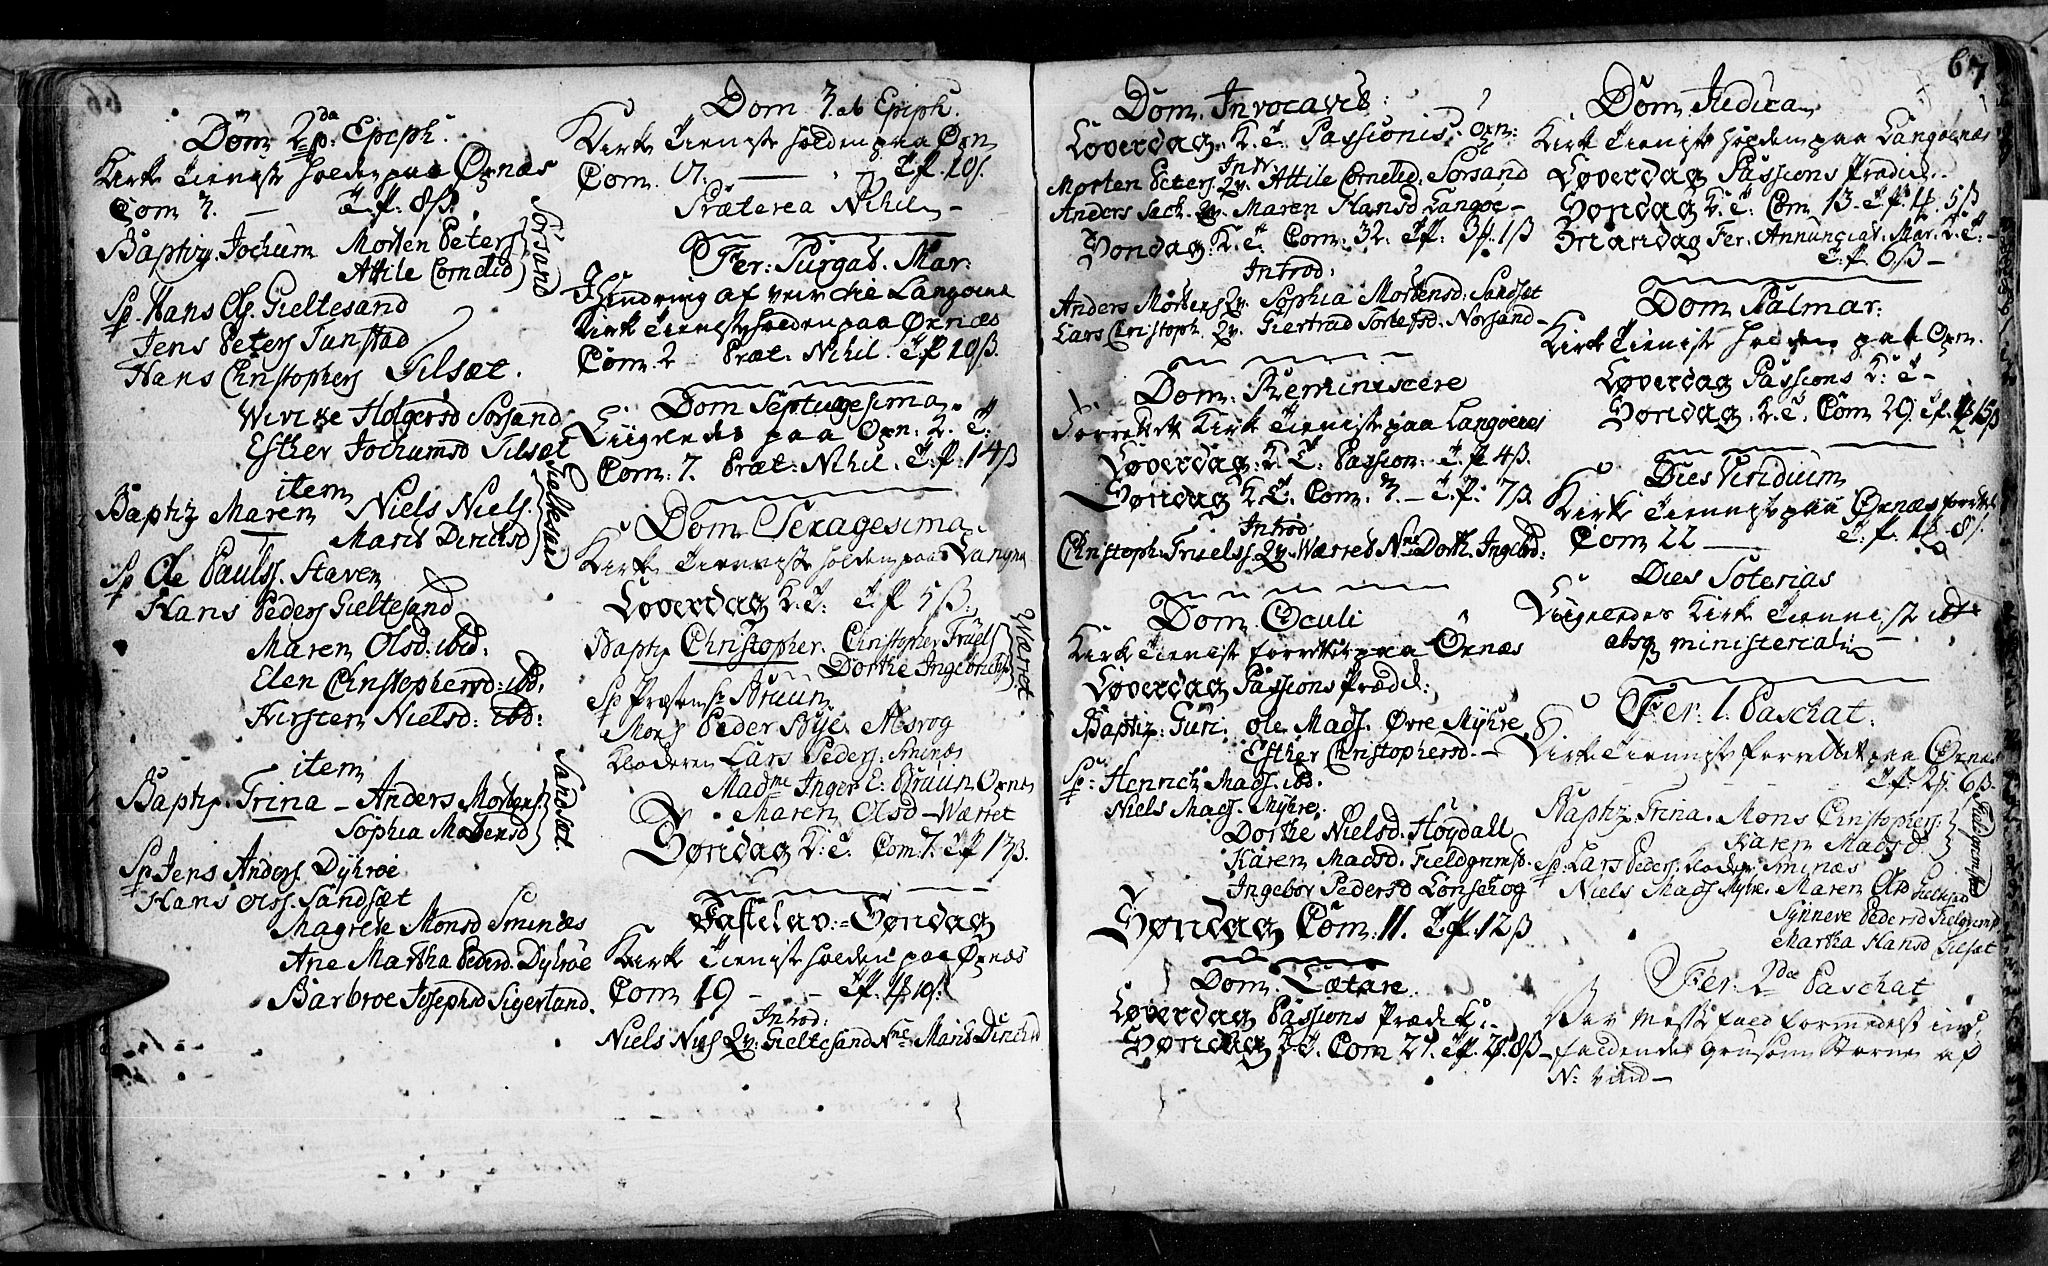 Dom 2da p: Epiph.
Kirke Tieniste holden paa Ørnæs
Com 3. — T. f. 8ß.
Baptiz. Jochum Morten Peters
Attile Cornelid
Sørsand
Sp. Hans Ols. Gieltesand
Jens Peters Tunstad
Hans Christophers Tilsæt.
Wivike Holgersd Sørsand
Esther Jochumsd Tilsæt
item
Baptiz Maren Niels Niels.
Marit Dirichsd
Sp Ole Pauls. Staven
Hans Peders Gieltesand
Maren Olsd: ibd:
Elen Christophersd: ibd.
Kirsten Nielsd: ibd:
item
Baptiz. Trina — Anders Mortens
Sophia Mortensd
Sandsæt
Sp Jens Anders. Dyhrøe
Hans Ols. Sandsæt
Magrete Monsd Sminæs
Ane Martha Pedersd. Dyhrøe
Barbroe Josephsd Sigerland.
Dom 3. ab Epiph.
Kirke Tieniste holden paa Ørn
Com. 17. — T. f. 10ß.
Præterea Nihil —
Fer: Purgat. Mar:
Kirke Tieniste holden paa Ørnæs
Com. 2 Præt. Nihil. T. f 10ß.
Dom Septuagesima
Liigeledes paa Ørn. K. T:
Com: 7. Præt: Nihil. T. f. 14ß
Dom Sexagesima
Kirke Tieniste holden paa Langnæ
Løverdag K. T: T. f 5ß.
Baptiz Christopher. Christopher Truels
Dorthe Ingebrichts
Wærret
Sp Præsten Sr Bruun
Mons Peder Bye. Alsvog
Klockeren Lars Peders. Sminæs
Madme Inger E: Bruun Ørnæs
Maren Olsd — Wærret
Søndag K: T. Com 7. T f 13ß.
Fastelav: = Søndag
Kirke Tieniste holden paa Ørnæs
Com 19 — T f. 10ß.
Introd:
Niels Niels Qv: Gieltesand Nne Marit Dirichsd
67
Dom. Invocavit:
Løverdag. K. T. Passionis. Ørn:
Intr
Morten Peters. Qv. Attile Cornelid. Sørsand
Anders Jack. Qv. Maren Hansd Langøe —
Søndag K. T. Com: 32. T f: 1ß
Introd:
Anders Mortens Qv. Sophia Mortensd. Sandsæt
Lars Christoph. Qv. Giertrud Torlefsd. Norsand —
Dom. Reminiscere
Forrettet Kirke Tieniste paa Langøenes
Løverdag: K. T: Passion: T. f 4ß.
Søndag K. T: Com. 3. — T. f: 7ß
Introd
Christoph. Truels. Qv. Wærret Nne Dorth. Ingebd:
Dom. Oculi
Kirke Tieniste forrettet paa Ørnæs
Løverdag Passions Prædik:
Baptiz: Guri. Ole Mads. Øvre Myhre
Esther Christophersd. —
Sp: Henrich Mads. ibd.
Niels Mads. Myhre.
Dorthe Nielsd. Høydall
Karen Madsd. Fieldgrimsd.
Ingebor Pedersd Lonschog
Søndag Com. 11. T. f. 12ß
Dom. Lætare.
Løverdag Passions Prædik: —
Søndag K. T. Com 27. T f. 8ß —
Dom. Judica
Kirke Tieniste holden paa Langøenæs
Løverdag Passions Prædik. —
Søndag K: T: Com 13 T f. 5ß
Mandag Fer. Annunciat. Mar. K. T: —
T. f 8ß —
Dom Palmar:
Kirke Tieniste holden paa Ørn.
Løverdag Passions K: T —
Søndag: K. T. Com 29. T f. 15ß
Dies Viridium
Kirke Tieniste paa Ørnæs forrettet
Com 22 — T. f. 8ß.
Dies Soterias
Liigeledes Kirke Tieniste ibd
absq ministeriali —
Fer: 1. Paschat:
Kirke Tieniste forrettet paa Ørnæs
T. f. 6ß
Baptiz. Trina. Mons Christophers.
Karen Madsd
Sp. Lars Peders. Klocker Sminæs
Niels Mads Myhre. Maren Olsd Gieltesand
Synneve Pedersd Fielgrims
Martha Hansd Tilsæt
Fer: 2dae Paschat
Var Messefald formedelst ind:
faldende grusom Storm af
N: vind —